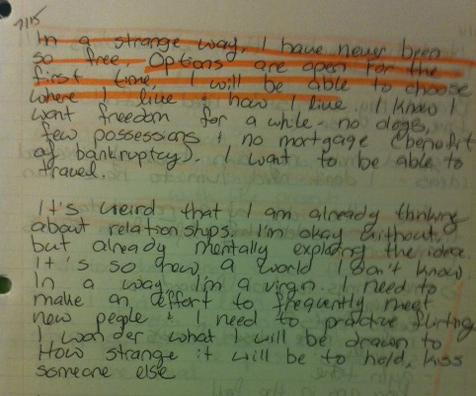 7/15
In a strange way, I have never been
so free. Options are open for the
first time, I will be able to choose
where I live & how I live. I know I
want freedom for a while - no dogs,
few possessions & no mortgage (benefit
of bankruptcy). I want to be able to
travel.
It's weird that I am already thinking
about relationships. I'm okay without,
but already mentally exploring the idea.
It's so new, a world I don't know
In a way, I'm a virgin. I need to
make an effort to frequently meet
new people & I need to practice flirting
I wonder what I will be drawn to
How strange it will be to hold, kiss
someone else